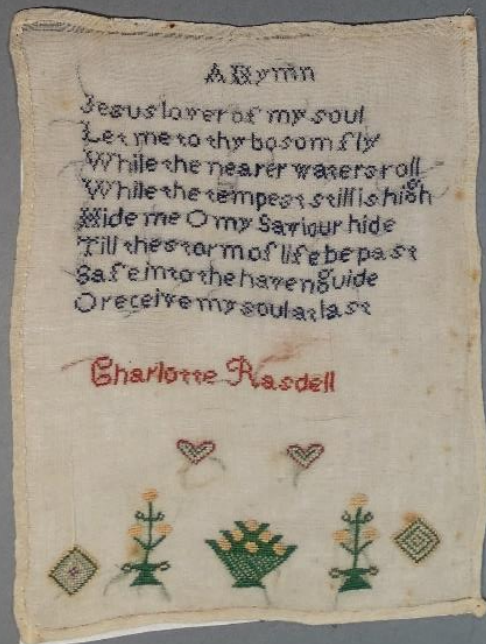 A Hymn
Jesus lover of my soul
Let me to thy bosom fly
While the nearer waters roll
While the tempest still is high
Hide me O my Saviour hide
Till the storm of life be past
Safe into the haven guide
O receive my soul at last
Charlotte Rasdell